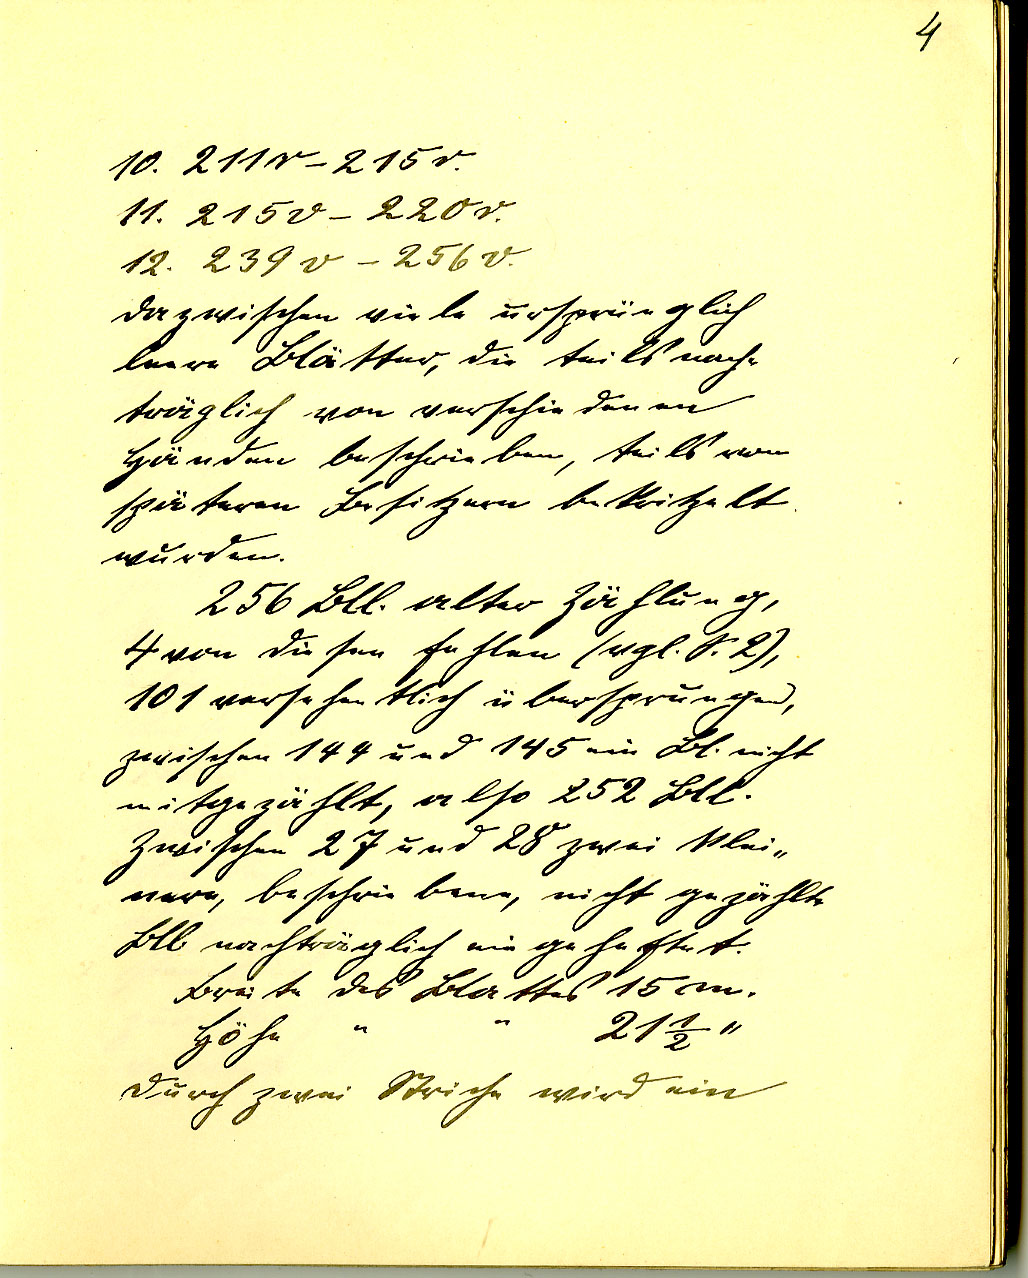 4
10. 211r–215r.
11. 215v–220r.
12. 239v–256v.
dazwischen viele ursprünglich
leere Blätter, die teils nach-
träglich von verschiedenen
Händen beschrieben, teils von
späteren Besitzern bekritzelt
wurden.
256 Bll. alter Zählung,
4 von diesen fehlen (vgl. S. 2),
101 versehentlich übersprungen,
zwischen 144 und 145 ein Bl. nicht
mitgezählt, also 252 Bll.
Zwischen 27 und 28 zwei klei„
nere, beschriebene, nicht gezählte
Bll nachträglich eingeheftet.
Breite des Blattes 15 cm.
Höhe " " 21 1/2 "
Durch zwei Striche wird ein